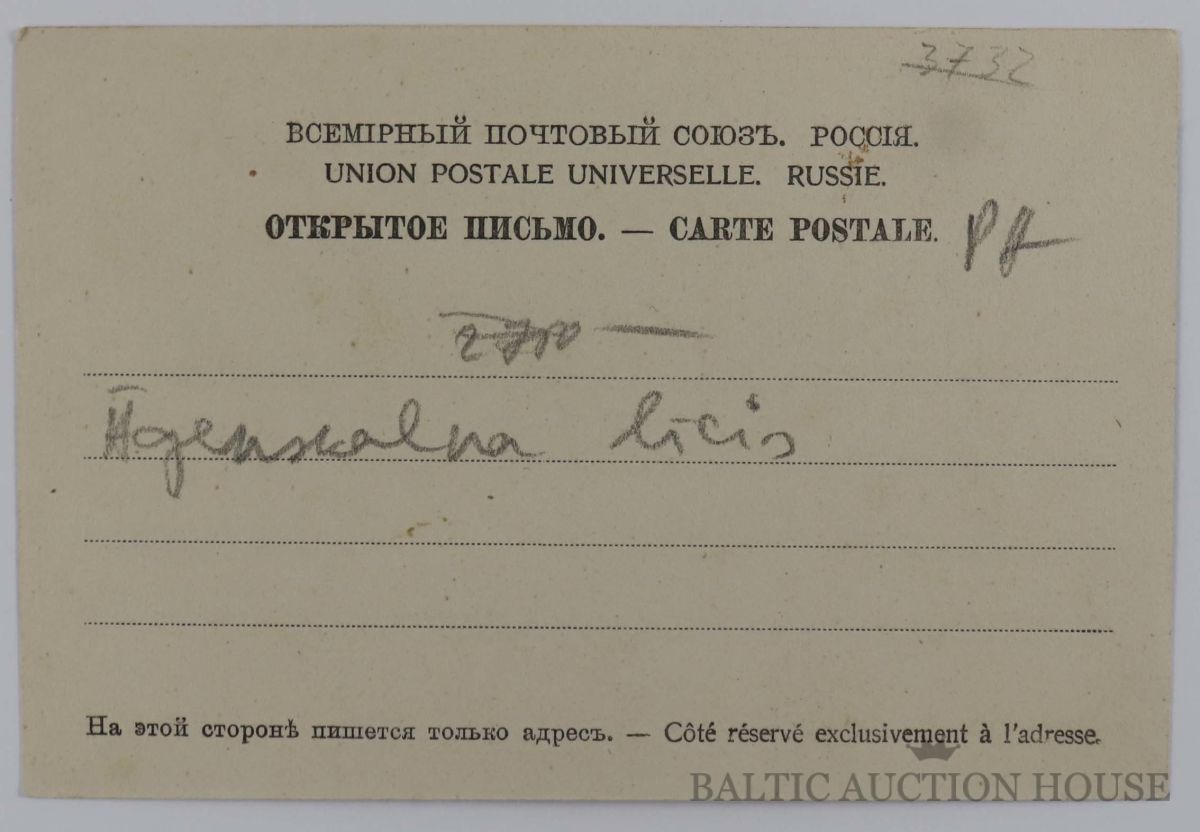 3732
ВСЕМІРНЫЙ ПОЧТОВЫЙ СОЮЗЪ. РОССІЯ.
UNION POSTALE UNIVERSELLE. RUSSIE.
ОТКРЫТОЕ ПИСЬМО. — CARTE POSTALE.
Āgenskalna līcis
На этой сторонѣ пишется только адресъ. — Côté réservé exclusivement à l'adresse.
BALTIC AUCTION HOUSE